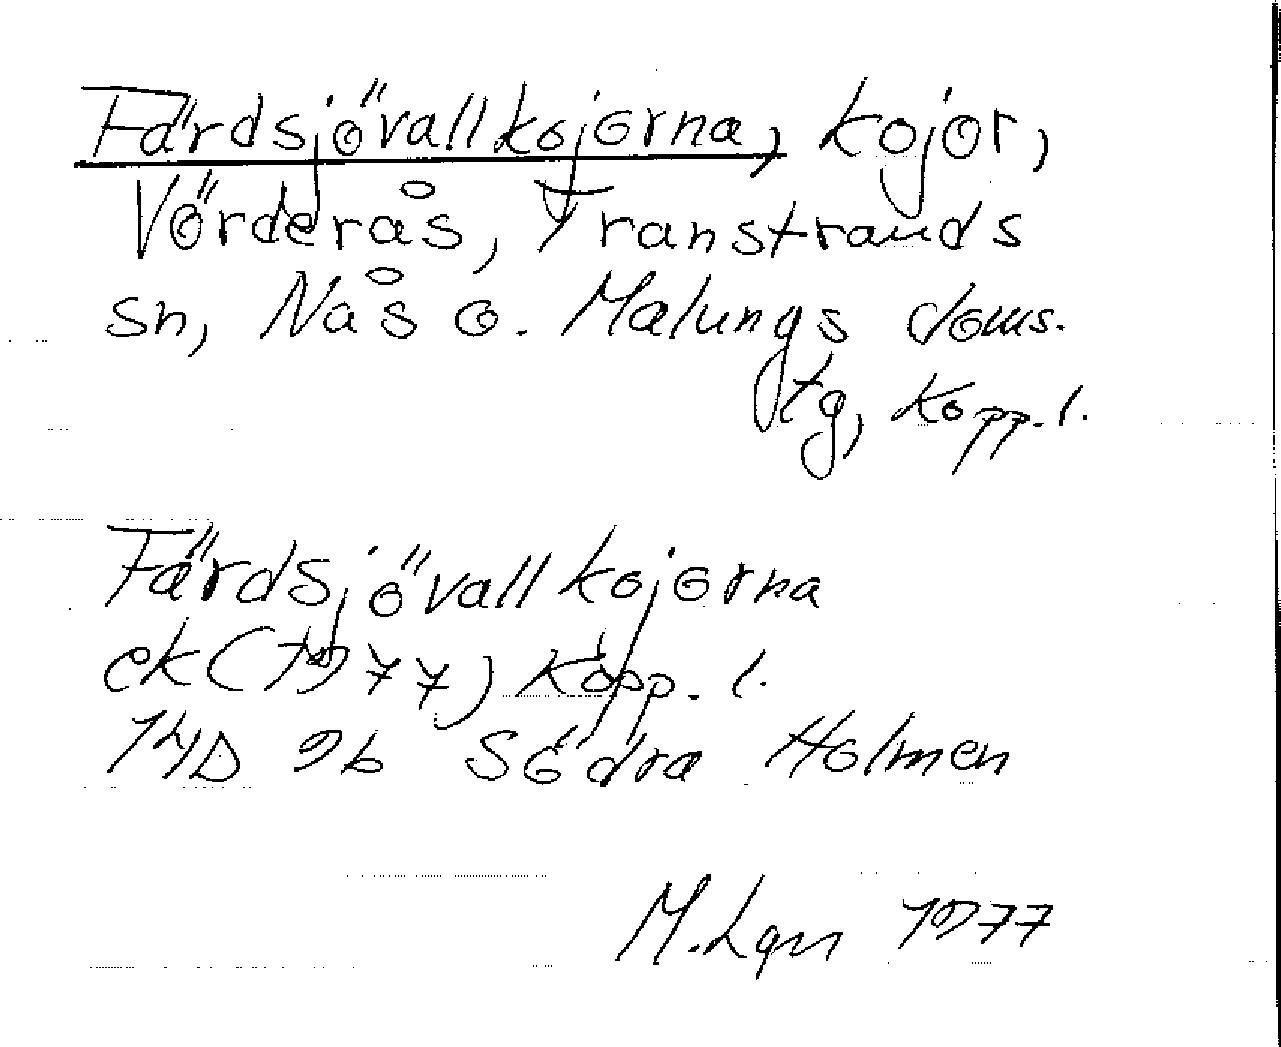 Färdsjövallkojorna, kojor,
Vörderås, Transtrands
sn, Nås o. Malungs doms.
tg, Kopp. l.
Färdsjövallkojorna
ek (1977) Kopp. l.
14D 9b Södra Holmen
M. Lgn 1977